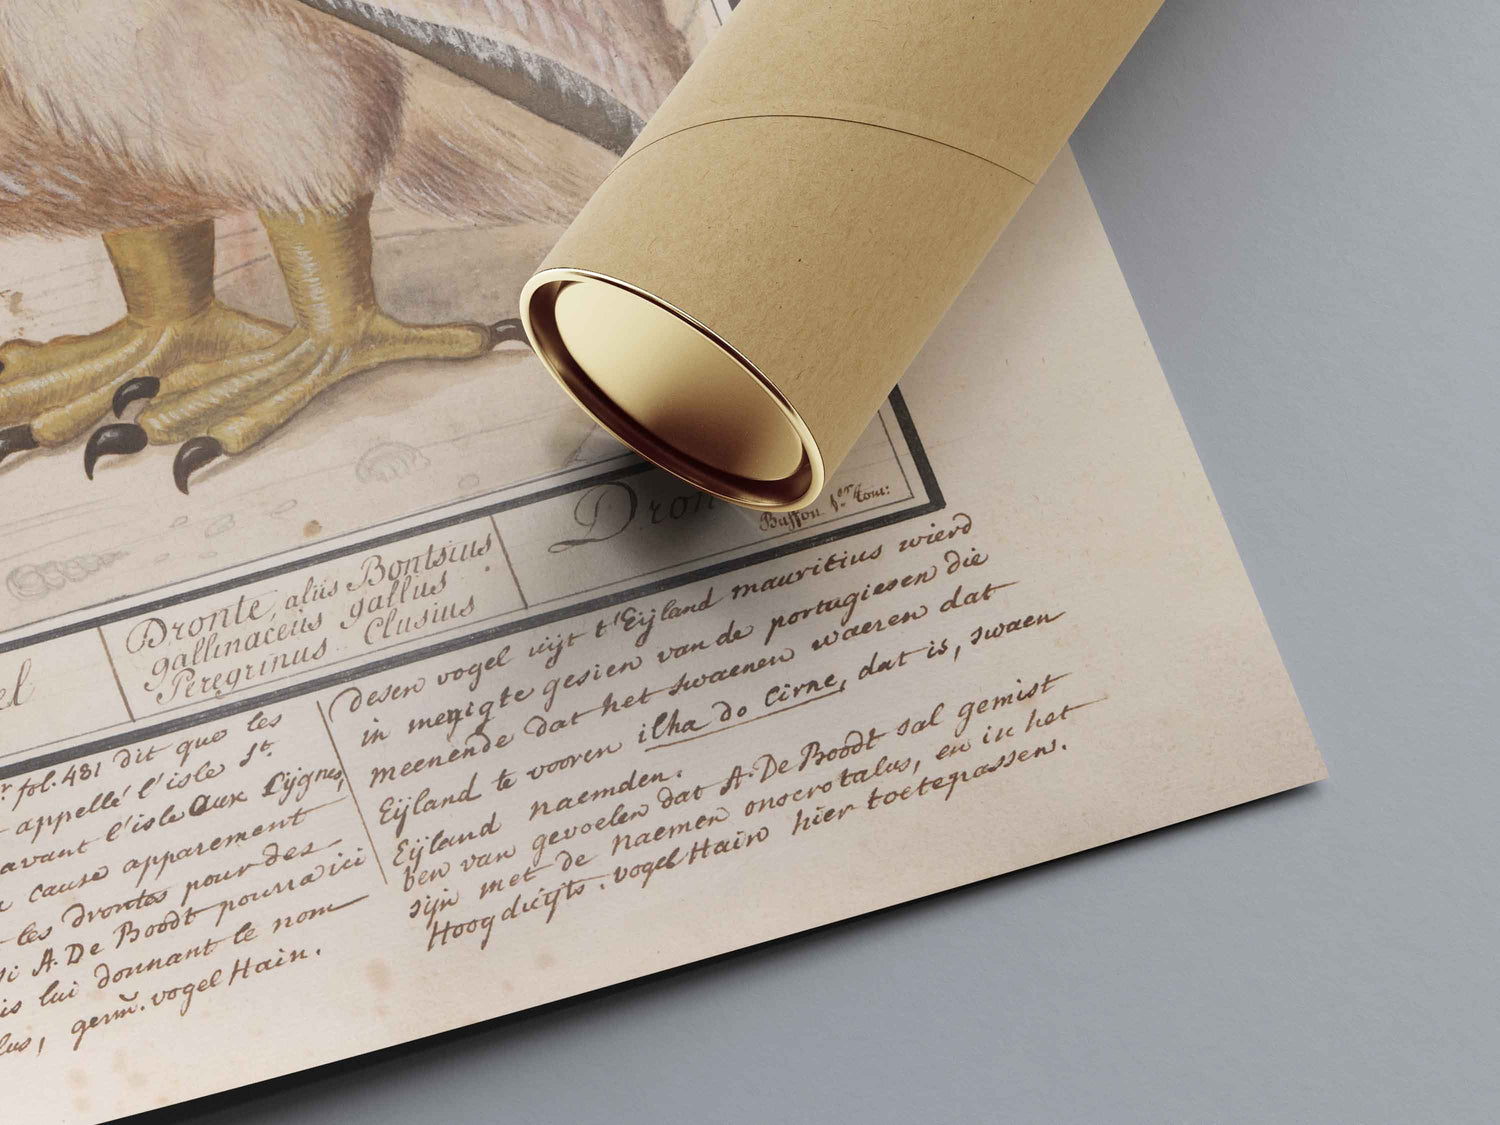 el
Dronte, aliis Bontsius
gallinaceüs gallus
Peregrinus Clusius
Dron
Buffon
fol. 431 dit que les
appellé l'isle St.
avant l'isle aux Cijgnes,
cause apparement
les drontes pour des
A. De Boodt pourra ici
lui donnant le nom
germ. vogel Hain.
Desen vogel uijt t'Eijland mauritius wierd
in menigte gesien van de portugiesen die
meenende dat het swaenen waeren dat
Eijland te vooren ilha do Cirne, dat is, swaen
Eijland naemden.
ben van gevoelen dat A. De Boodt sal gemist
sijn met de naemen onocrotalus, en in het
Hoogduijts. vogel Hain hier toetepassen.